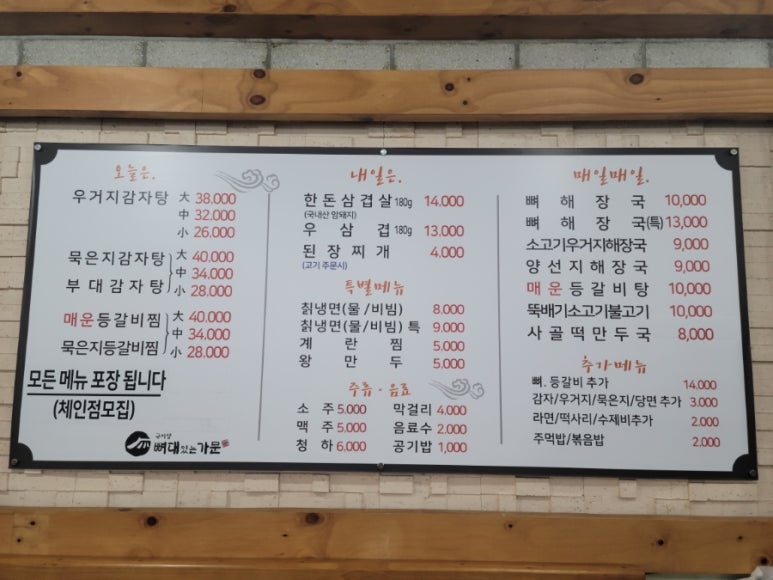 오늘은.
우거지감자탕 大 38.000
中 32.000
小 26.000
묵은지감자탕 大 40.000
中 34.000
부대감자탕 小 28.000
매운등갈비찜 大 40.000
中 34.000
묵은지등갈비찜 小 28.000
모든 메뉴 포장 됩니다
(체인점모집)
뼈대있는가문
내일은.
한돈삼겹살 180g 14.000
(국내산 암퇘지)
우삼겹 180g 13.000
된장찌개 4.000
(고기 주문시)
특별메뉴
칡냉면(물/비빔) 8.000
칡냉면(물/비빔) 특 9.000
계란찜 5.000
왕만두 5.000
주류·음료
소주 5.000 막걸리 4.000
맥주 5.000 음료수 2.000
청하 6.000 공기밥 1,000
매일매일.
뼈해장국 10,000
뼈해장국(특) 13,000
소고기우거지해장국 9,000
양선지해장국 9,000
매운등갈비탕 10,000
뚝배기소고기불고기 10,000
사골떡만두국 8,000
추가메뉴
뼈.등갈비 추가 14.000
감자/우거지/묵은지/당면 추가 3.000
라면/떡사리/수제비추가 2.000
주먹밥/볶음밥 2.000